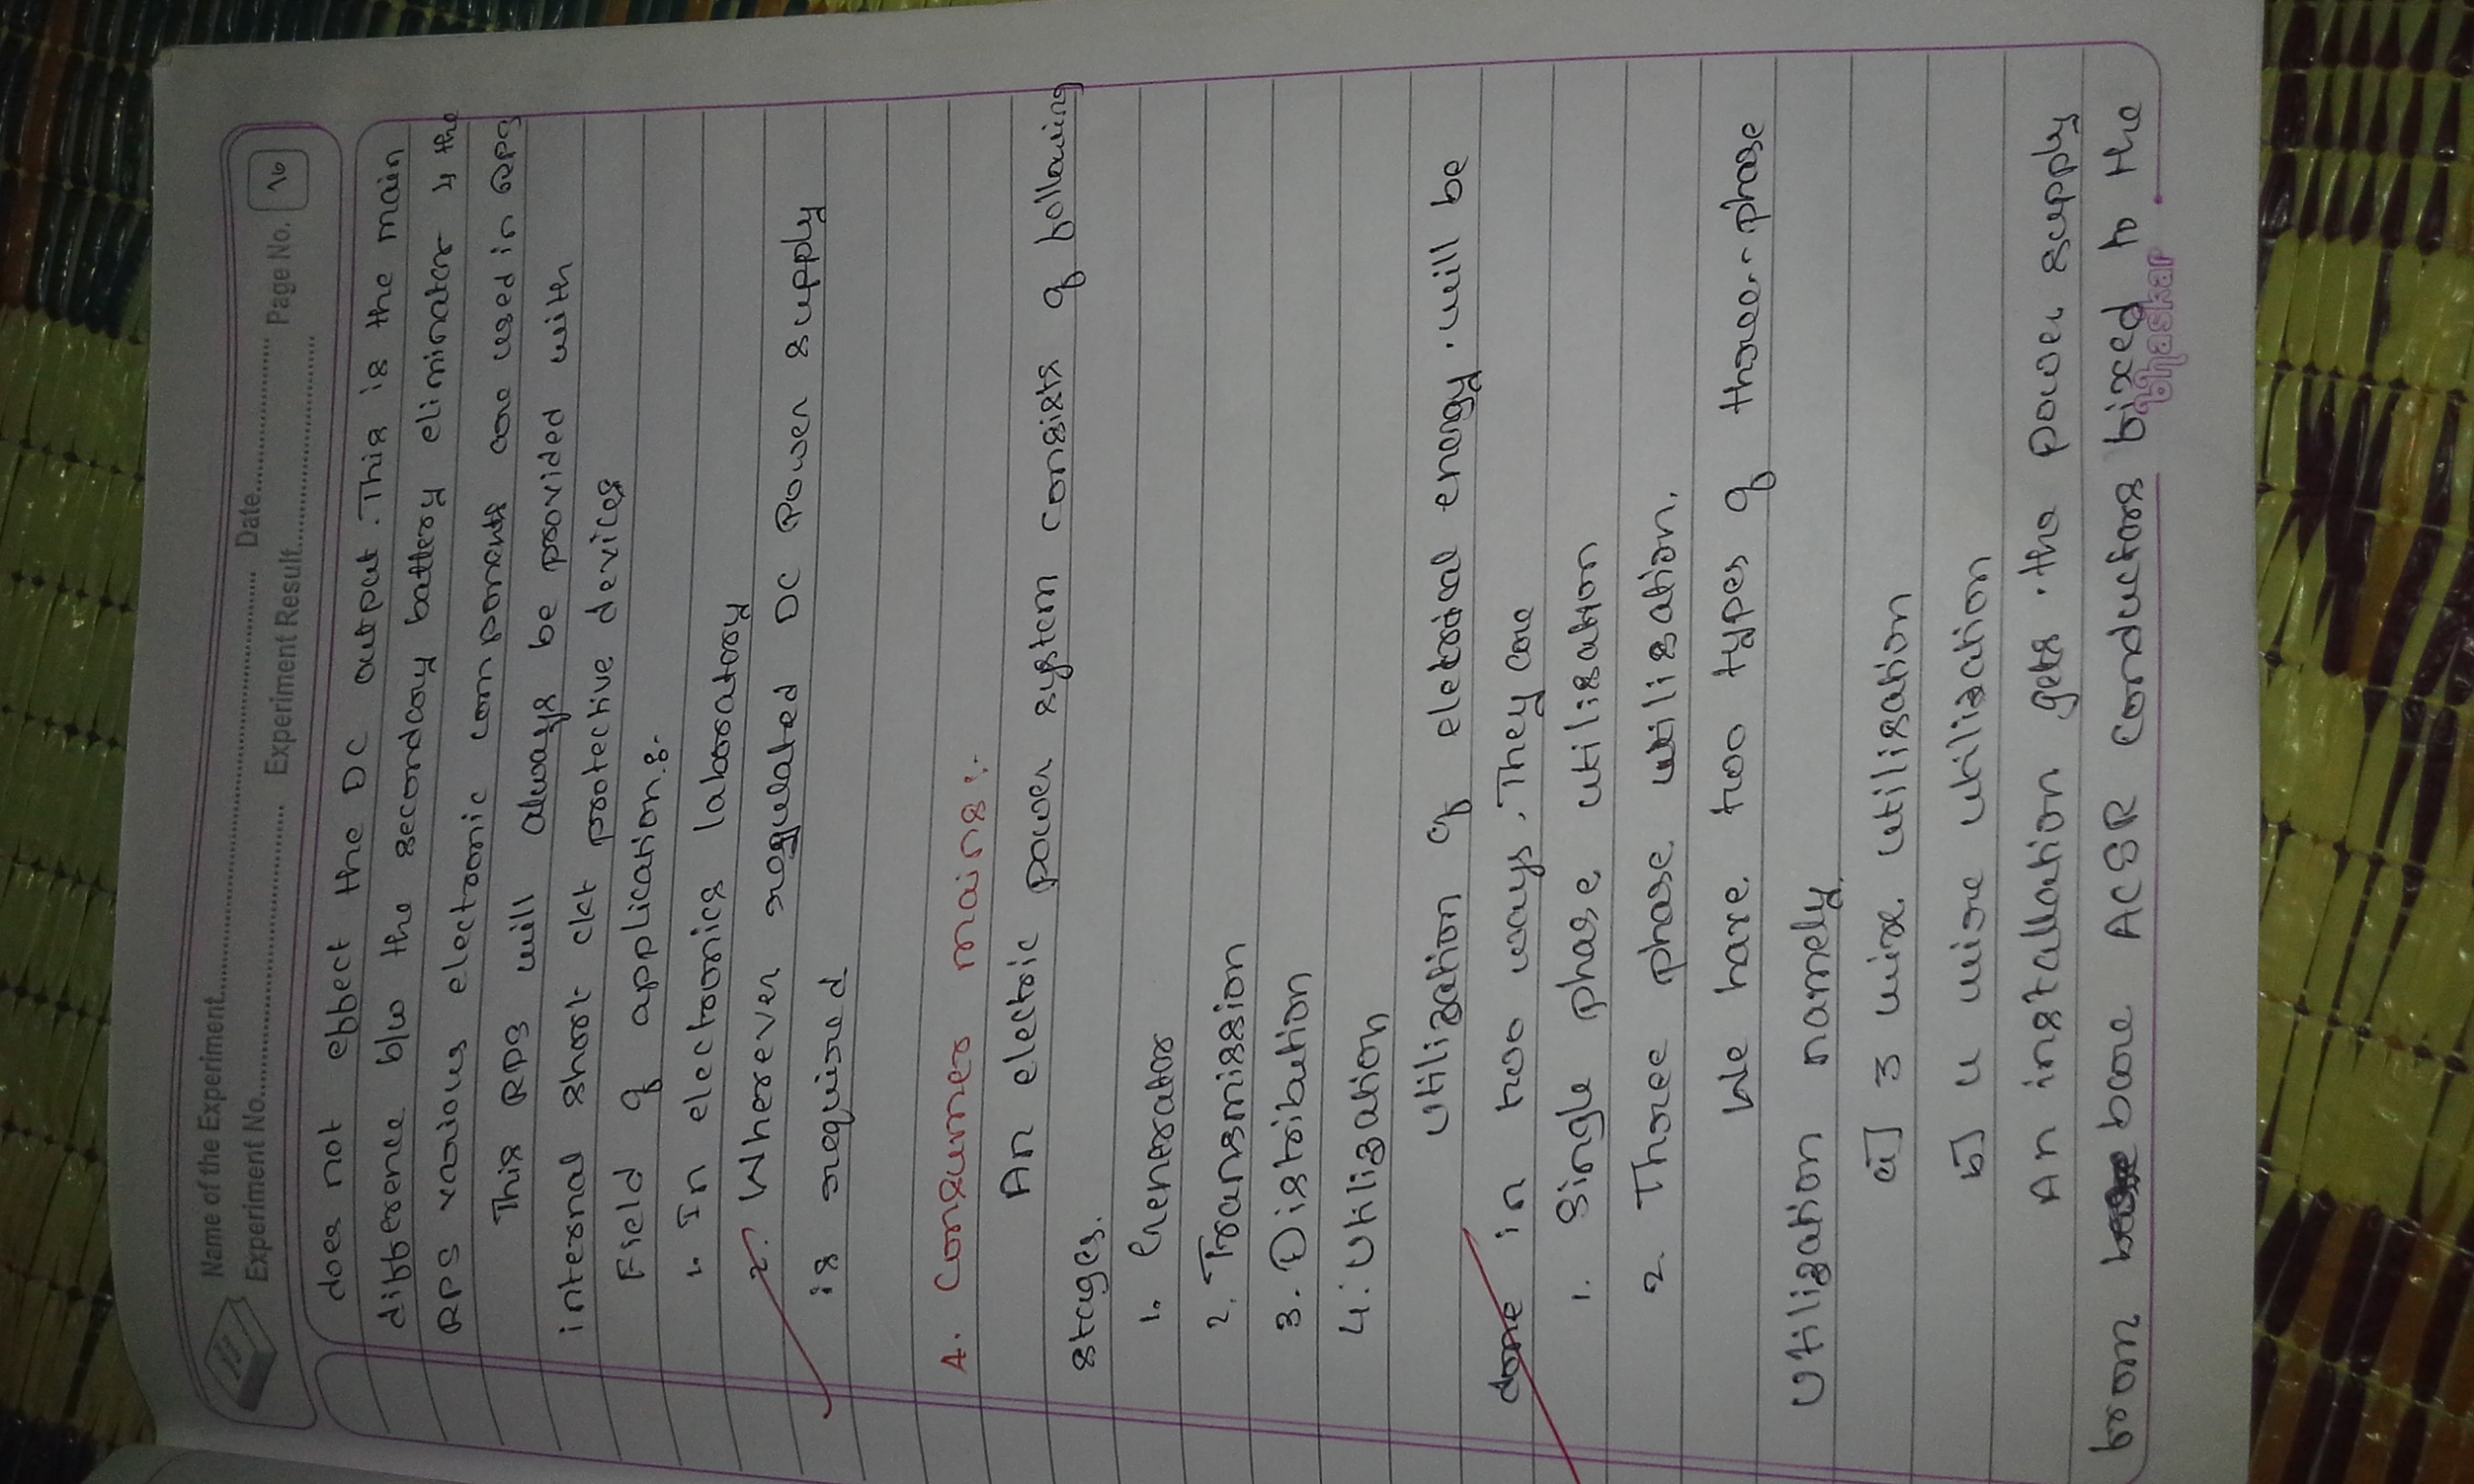 Name of the Experiment........ Date........
Experiment No........ Experiment Result........ Page No. 16
does not effect the DC output. This is the main
difference b/w the secondary battery eliminator & the
RPS various electronic components are used in RPS
This RPS will always be provided with
internal short ckt protective devices
Field of application:-
1. In electronics laboratory
2. Wherever regulated DC Power supply
is required
4. Consumer mains:-
An electric power system consists of following
stages.
1. Generator
2. Transmission
3. Distribution
4. Utilization
Utilization of eletrical energy will be
done in two ways. They are
1. Single phase utilisation
2. Three phase utilisation.
We have two types of three-phase
Utilization namely
a] 3 wire utilisation
b] 4 wire utilization
An installation gets the power supply
from bare ACSR conductors fixed to the
bhaskar